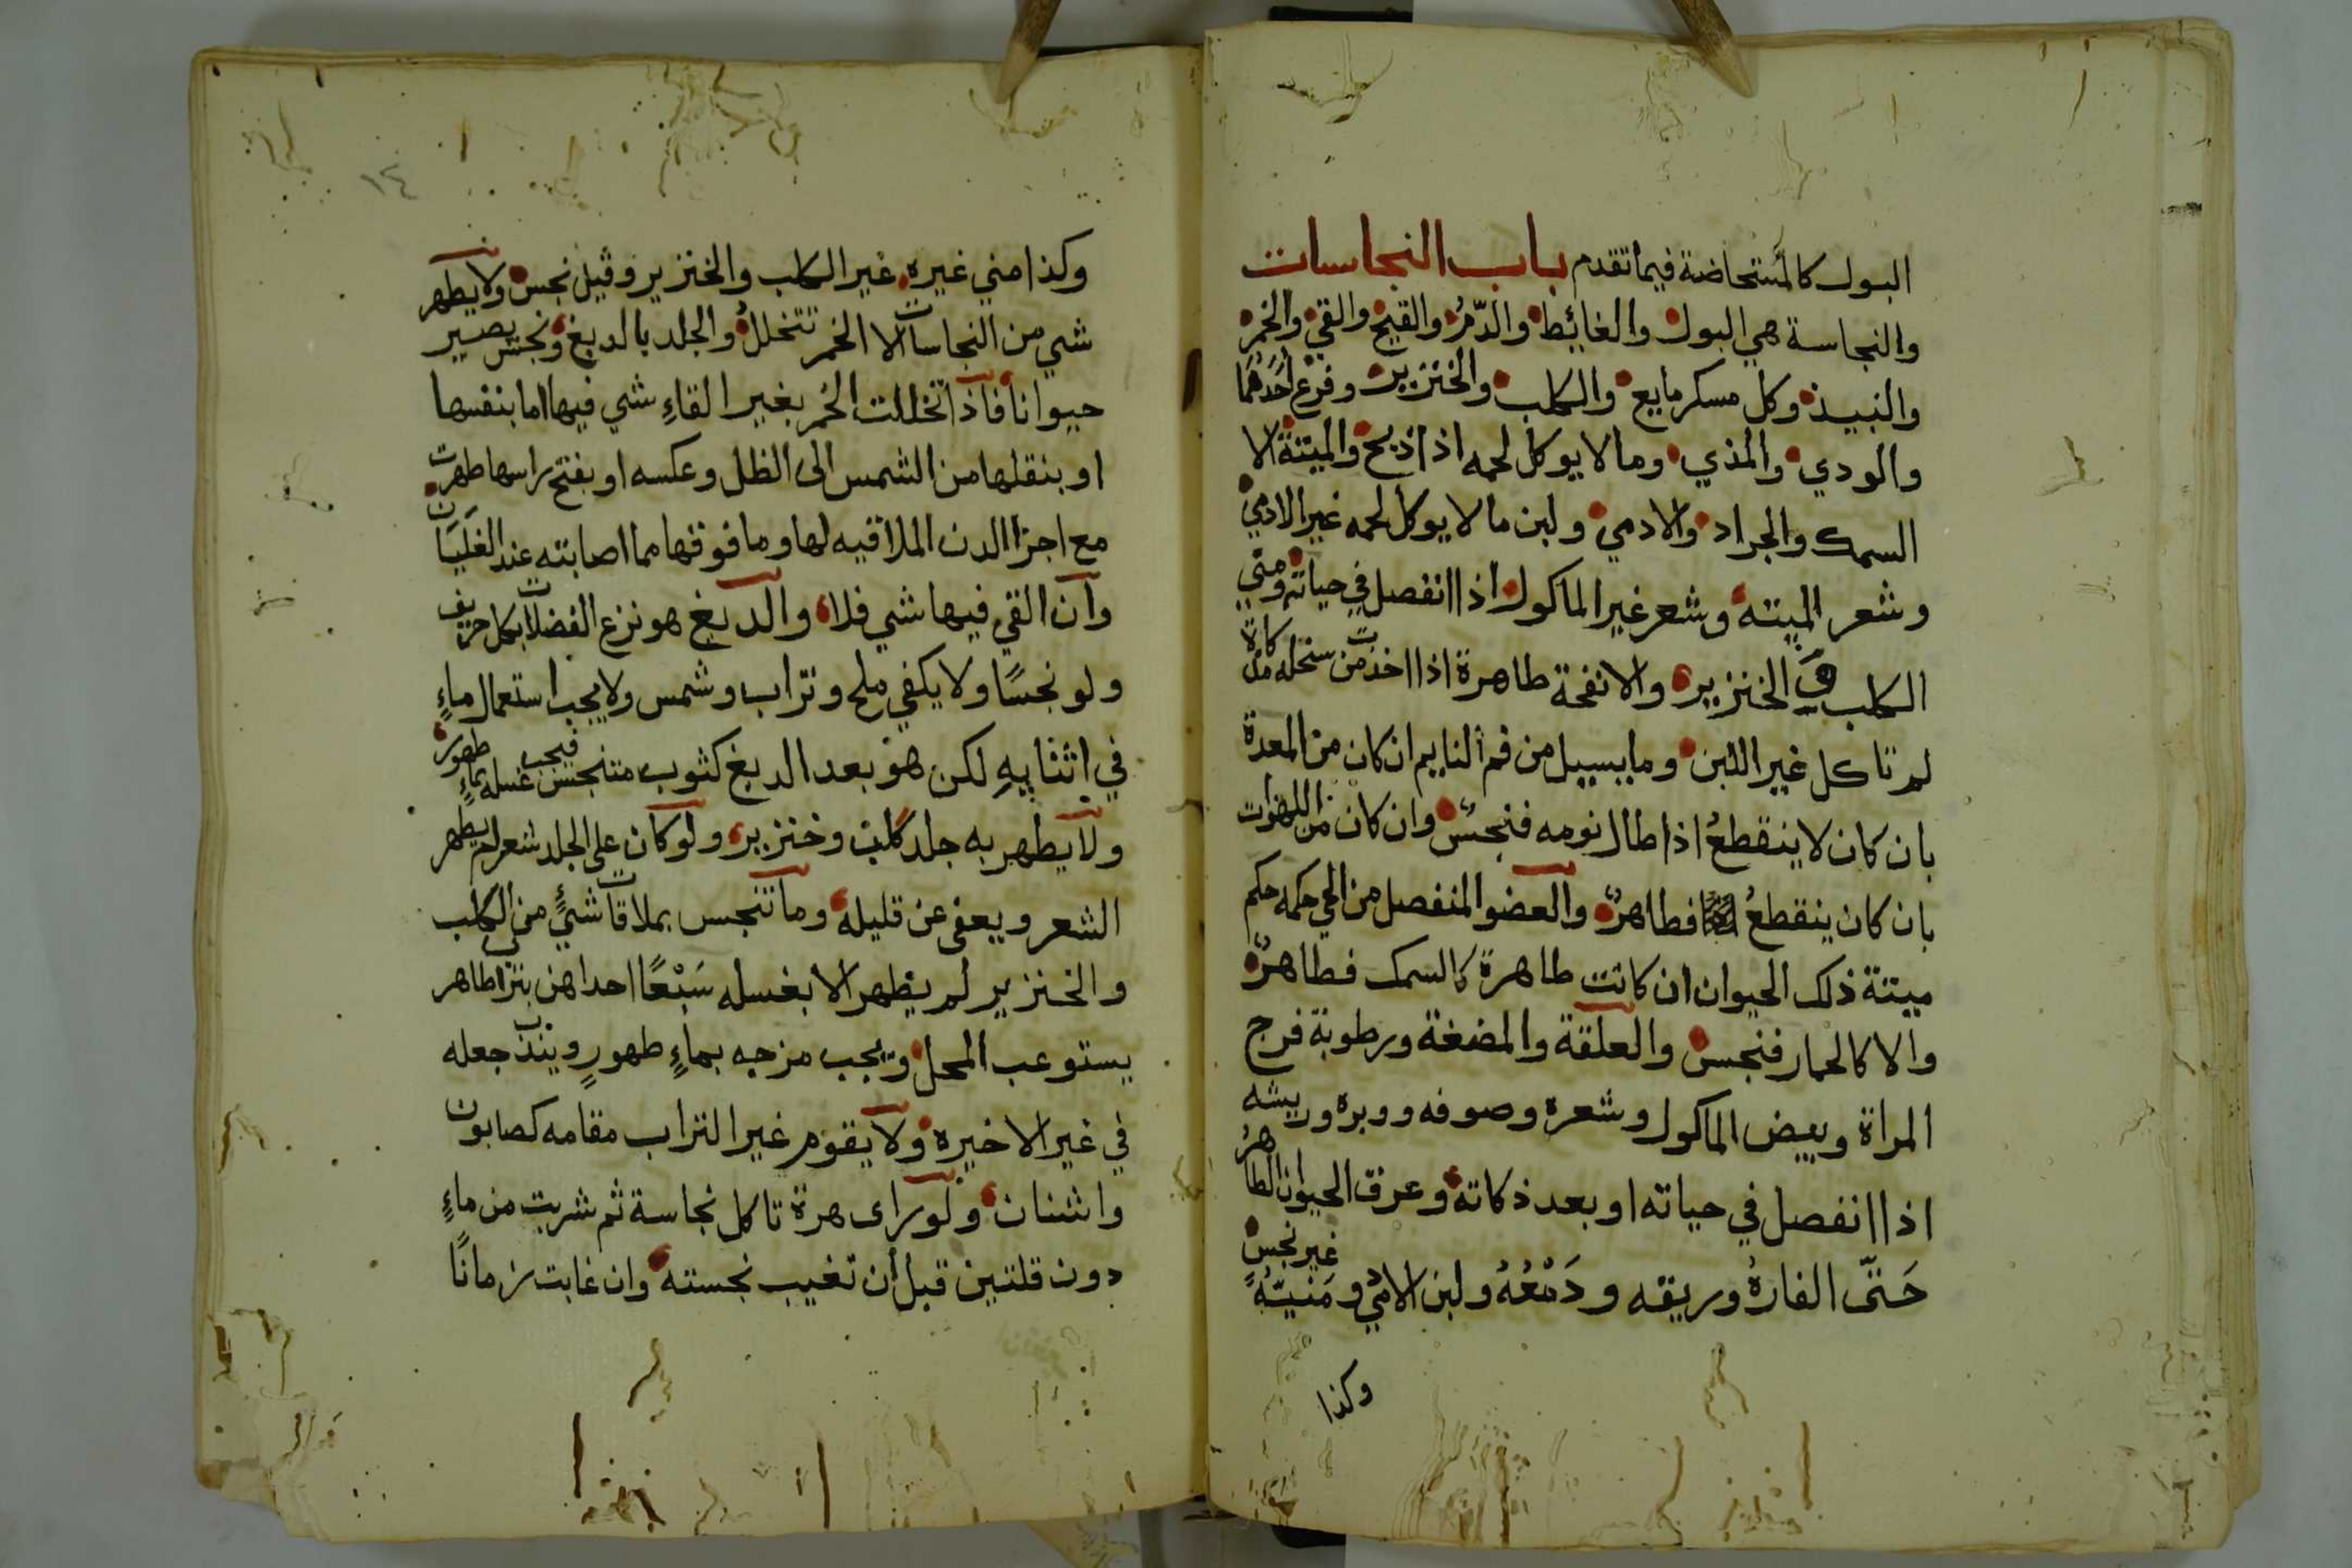 البول كالمستحاضة فيما تقدم باب النجاسات
والنجاسة هي البول والغائط والدّمُ والقيح والقي والخمر
والنبيذ وكل مسكر مايع والكلب والخنزير وفرع احَدُهُمَا
والودي والمذي وما لا يوكل لحمه اذا ذبح والميتة الا
السمك والجراد والادمي ولبن ما لا يوكل لحمه غير الادمي
وشعر الميته وشعر غير الماكول اذا انفصل في حياته ومني
الكلب و الخنزير والانفحة طاهرة اذا اخذت من سخله مذكاة
لم تاكل غير اللبن وما يسيل من فم النايم ان كان من المعدة
بان كان لا ينقطعُ اذا طال نومه فنجسٌ وان كان من اللهوات
بان كان ينقطعُ فطاهرٌ والعضو المنفصل من الحي حكمه حكم
ميتة ذلك الحيوان ان كانت طاهرة كالسمك فطاهرٌ
والا كالحمار فنجس والعلقة والمضغة ورطوبة فرج
المراة وبيض الماكول وشعره وصوفه ووبره وريشه
اذا انفصل في حياته او بعد ذكاته وعرق الحيوان الطاهرُ
حَتّى الفارهُ وريقه ودَمْعُهُ ولبن الادمي ومَنيّهُ غير نجس
وكذا
١٤
وكذا مني غيره غير الكلب والخنزير وقيل نجس ولا يطهر
شي من النجاسات الا الخمر تتخللُ والجلد بالدبغ ونجس يصير
حيوانا فاذا تخللت الخمر بغير القاءِ شي فيها اما بنفسها
او بنقلها من الشمس الى الظل وعكسه او بفتح راسها طهرت
مع اجزا الدن الملاقيه لها وما فوقها مما اصابته عند الغَلَيَان
وان القي فيها شي فلا والدبغ هو نزع الفضلات بكل حريف
ولو نجسًا ولا يكفي ملح وتراب وشمس ولا يجب استعمال ماءٍ
في اثنايهِ لكن هو بعد الدبغ كثوب متنجس فيجب غسله بماءٍ طهور
ولا يطهر به جلد كلب وخنزير ولو كان على الجلد شعر لم يطهر
الشعر ويعفى عن قليله وما تنجس بملاقات شيءٍ من الكلب
والخنزير لم يطهر الا بغسله سَبْعًا احداهن بتراب طاهر
يستوعب المحل ويجب مزجه بماءٍ طهورٍ ويندب جعله
في غير الاخيره ولا يقوم غير التراب مقامه كصابون
واشنان ولو راى هرة تاكل نجاسة ثم شربت من ماءٍ
دون قلتين قبل أن تغيب نجسته وان غابت زمانًا